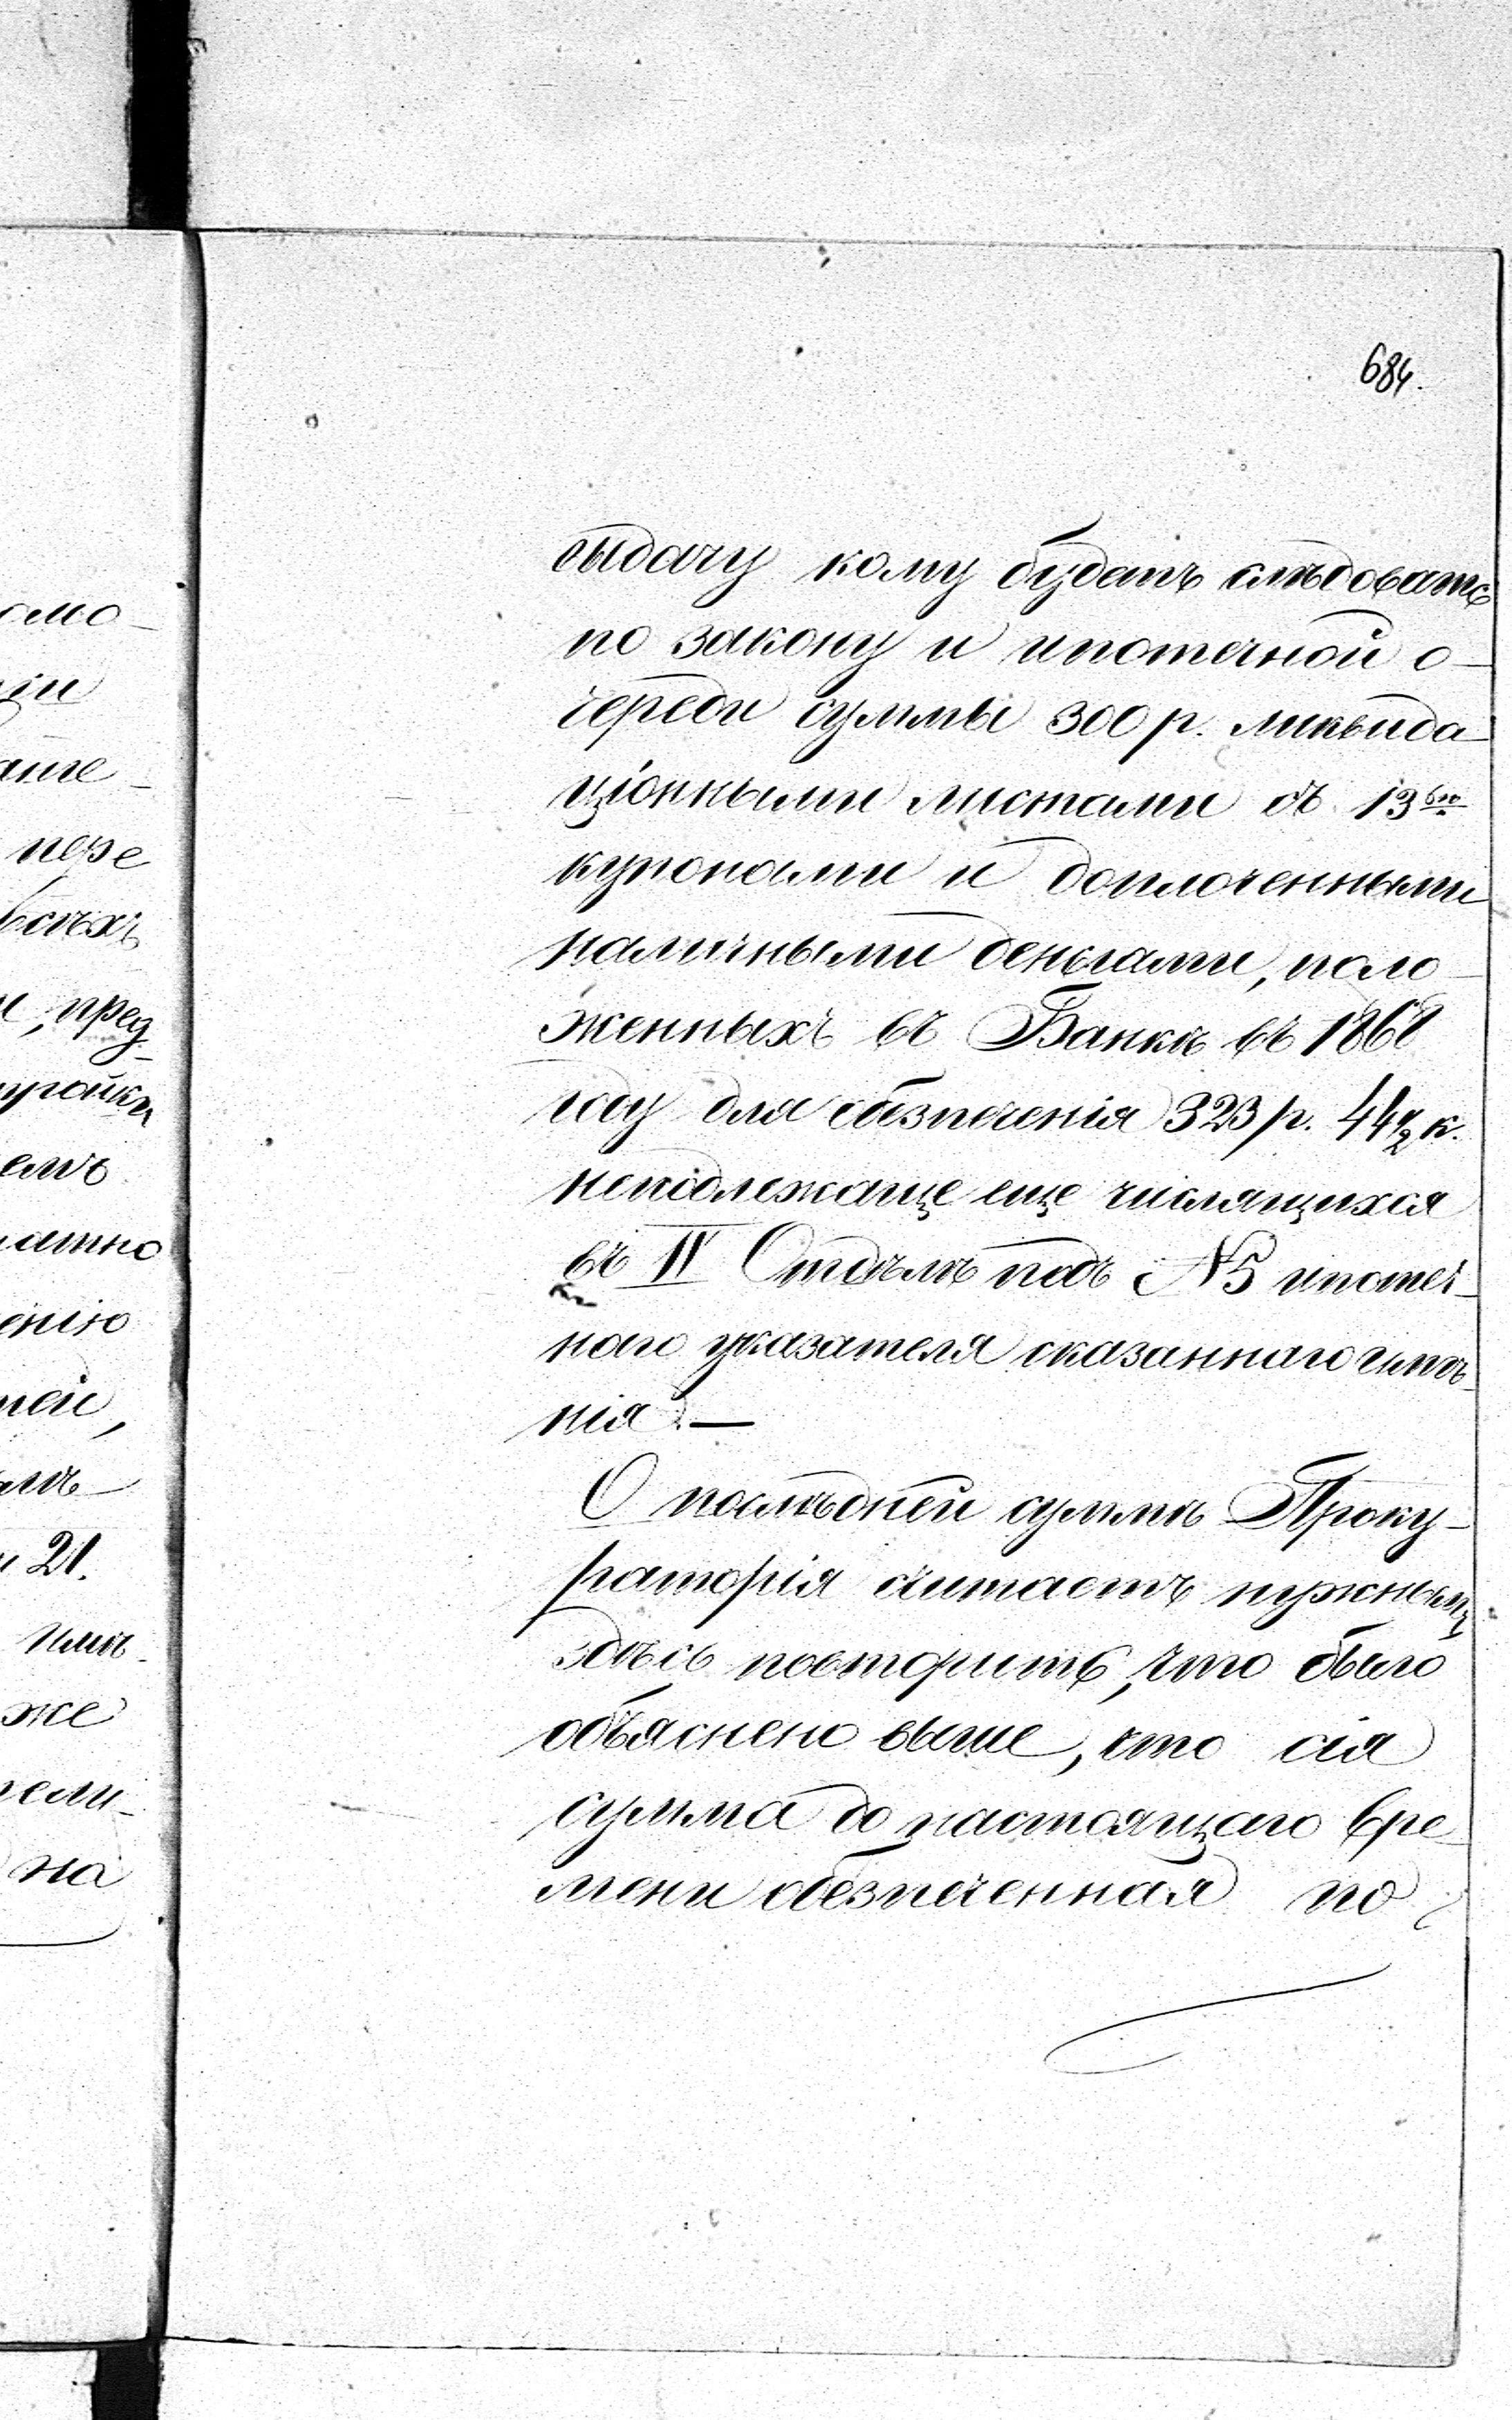 684.
выдачу кому будетъ слѣдовать
по закону и ипотечной о-
череди суммы 300 р. ликвида-
ціонными листами съ 13ью
купонами и доплоченными
наличными деньгами, поло-
женныхъ въ Банкъ въ 1868
году для обезпеченія 323 р. 44½ к.
неподлежаще еще числящихся
въ IV Отдѣлѣ подъ N5 ипотеч-
наго указателя сказаннаго имѣ-
нія.—
О послѣдней суммѣ Проку-
раторія считаетъ нужнымъ
здѣсь повторить, что было
объяснено выше, что сія
сумма до настоящаго вре-
мени обезпеченная по
омо-
ніи
пере
всѣхъ
, пред-
тройки
атно
енію
21.
имѣ-
же
на